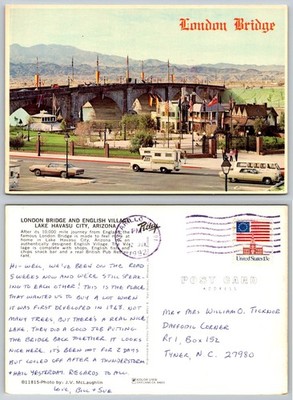 London Bridge
LONDON BRIDGE AND ENGLISH VILLAGE
LAKE HAVASU CITY, ARIZONA
After its 10,000 mile journey from England, the
famous London Bridge is made to feel at home
in Lake Havasu City, Arizona
authentically designed English Village. The
lage is complete with shops, English
chips snack bar and a real British Pub
HI- WELL, WE'VE BEEN ON THE ROAD
5 WEEKS NOW AND WE'RE STILL SPEAK-
ING TO EACH OTHER! THIS IS THE PLACE
THAT WANTED US TO BUY A LOT WHEN
IT WAS FIRST DEVELOPED IN 1965. NOT
MANY TREES, BUT THERE'S A REAL NICE
LAKE. THEY DID A GOOD JOB PUTTING
THE BRIDGE BACK TOGETHER. IT LOOKS
NICE HERE. IT'S BEEN HOT FOR 2 DAYS
BUT COOLED OFF AFTER A THUNDERSTORM
& HAIL YESTERDAY. REGARDS TO ALL
LOVE, BILL & SUE
Photo by: J.V. McLaughlin
PM
POST CARD
ADDRESS
MR & MRS WILLIAM O.
CORNER
RT 1, BOX 152
TYNER, N.C. 27980